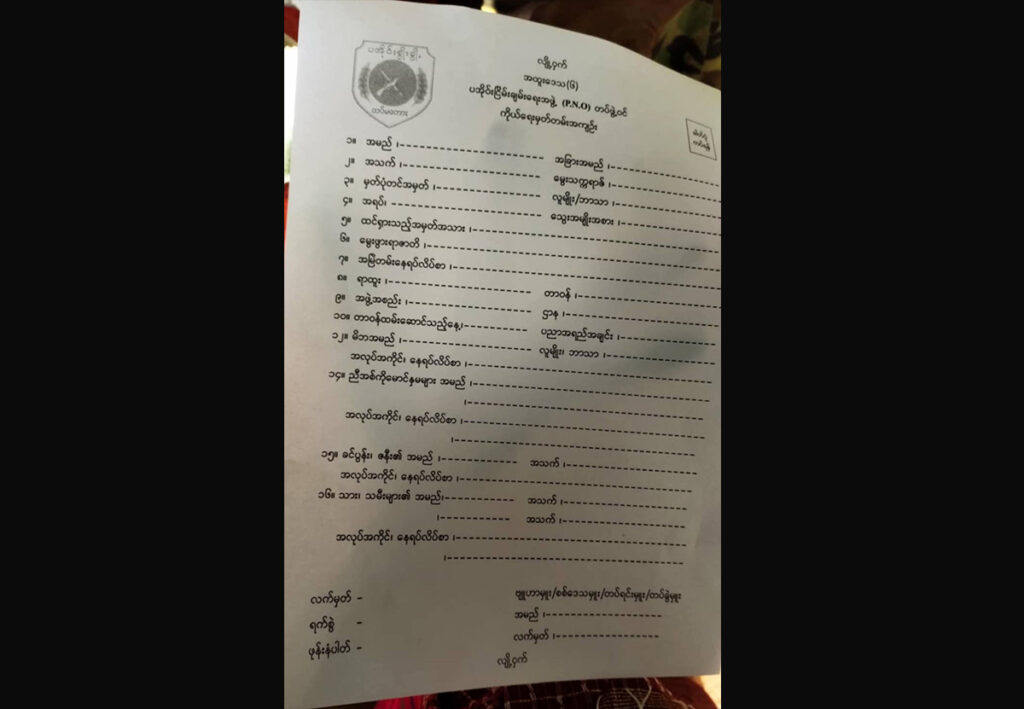 ပအိုဝ်းမျိုးချစ်
တပ်မတော်
လျှို့ဝှက်
အထူးဒေသ(၆)
ပအိုဝ်းငြိမ်းချမ်းရေးအဖွဲ့ (P.N.O) တပ်ဖွဲ့ဝင်
ကိုယ်ရေးမှတ်တမ်းအကျဉ်း
၁။ အမည် ၊ အခြားအမည် ၊
၂။ အသက် ၊ မွေးသက္ကရာဇ် ၊
၃။ မှတ်ပုံတင်အမှတ် ၊ လူမျိုး/ဘာသာ ၊
၄။ အရပ်၊ သွေးအမျိုးအစား ၊
၅။ ထင်ရှားသည့်အမှတ်အသား ၊
၆။ မွေးဖွားရာဇာတိ ၊
၇။ အမြဲတမ်းနေရပ်လိပ်စာ ၊
၈။ ရာထူး ၊ တာဝန် ၊
၉။ အဖွဲ့အစည်း ၊ ဌာန ၊
၁၀။ တာဝန်ထမ်းဆောင်သည့်နေ့ ၊ ပညာအရည်အချင်း ၊
၁၂။ မိဘအမည် ၊ လူမျိုး၊ ဘာသာ ၊
အလုပ်အကိုင်၊ နေရပ်လိပ်စာ ၊
၁၄။ ညီအစ်ကိုမောင်နှမများ အမည် ၊
၊
အလုပ်အကိုင်၊ နေရပ်လိပ်စာ ၊
၊
၁၅။ ခင်ပွန်း၊ ဇနီး၏ အမည် ၊ အသက် ၊
အလုပ်အကိုင်၊ နေရပ်လိပ်စာ ၊
၁၆။ သား၊ သမီးများ၏ အမည်၊ အသက် ၊
၊ အသက် ၊
အလုပ်အကိုင်၊ နေရပ်လိပ်စာ ၊
၊
လက်မှတ် - ဗျူဟာမှူး/စစ်ဒေသမှူး/တပ်ရင်းမှူး/တပ်ခွဲမှူး
ရက်စွဲ - အမည် ၊
ဖုန်းနံပါတ် - လက်မှတ် ၊
လျှို့ဝှက်